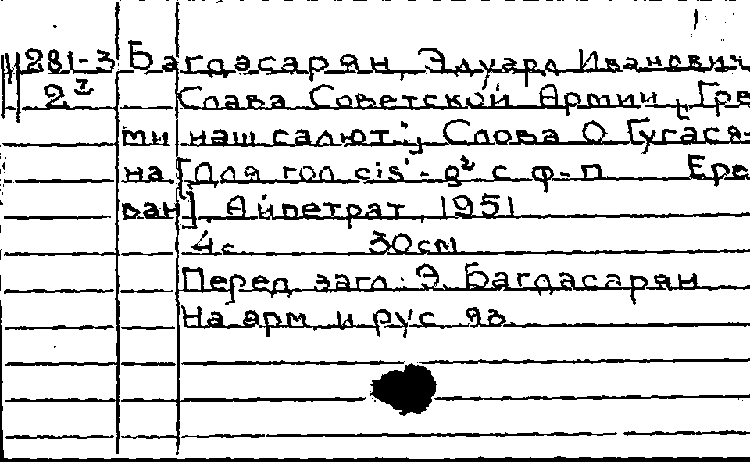 281-3 Багдасарян, Эдуард Иванович
2 I Слава Советской Армии; [Гре-
ми наш салют.]; Слова О. Гугася-
на [Для гол. cis¹-g² с ф-п. Ере-
ван], Айпетрат, 1951
4 с. 30 см
Перед загл.: Э. Багдасарян
На арм. и рус. яз.